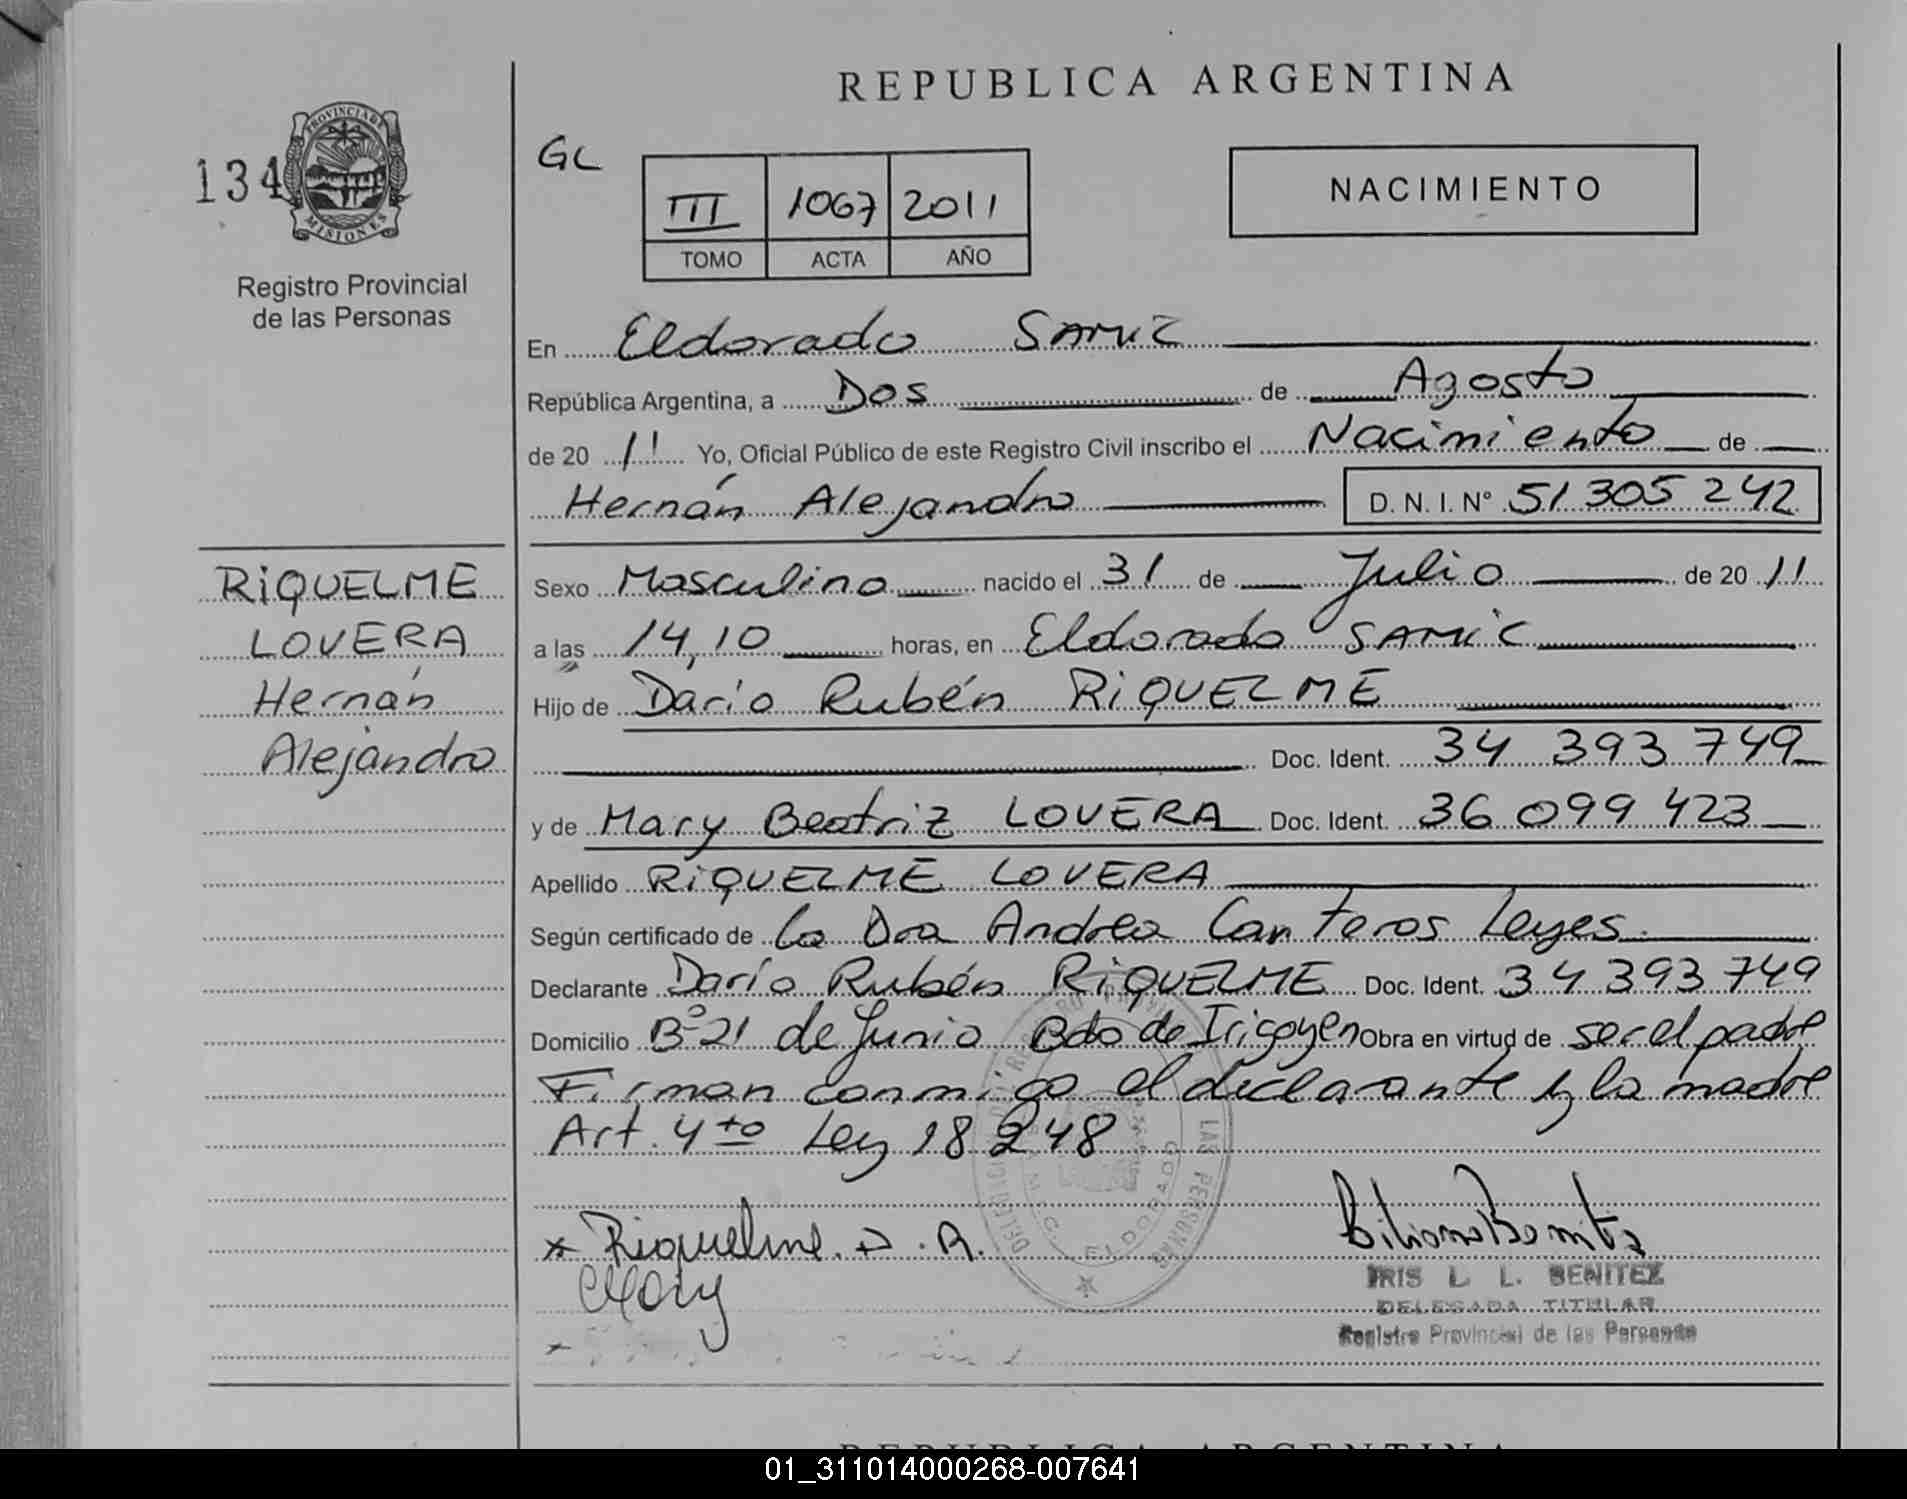 REPUBLICA ARGENTINA
134
PROVINCIA DE
MISIONES
Registro Provincial
de las Personas
GL
III 1067 2011
TOMO ACTA AÑO
NACIMIENTO
En Eldorado SAMIC
República Argentina, a Dos de Agosto
de 20 11 Yo, Oficial Público de este Registro Civil inscribo el Nacimiento de
Hernán Alejandro D. N. I. N° 51 305 242
RIQUELME
LOVERA
Hernán
Alejandro
Sexo Masculino nacido el 31 de Julio de 20 11
a las 14,10 horas, en Eldorado SAMIC
Hijo de Darío Rubén RIQUELME
Doc. Ident. 34 393 749
y de Mary Beatriz LOVERA Doc. Ident. 36 099 423
Apellido RIQUELME LOVERA
Según certificado de La Dra Andrea Canteros Leyes.
Declarante Darío Rubén RIQUELME Doc. Ident. 34 393 749
Domicilio B° 21 de Junio Bdo de Irigoyen Obra en virtud de ser el padre
Firman conmigo el declarante y la madre
Art. 4to Ley 18 248
LAS PERSONAS
ELDORADO
Riquelme. D. R.
Mary
IRIS L. L. BENITEZ
DELEGADA TITULAR
Registro Provincial de las Personas
REPUBLICA ARGENTINA
01_311014000268-007641